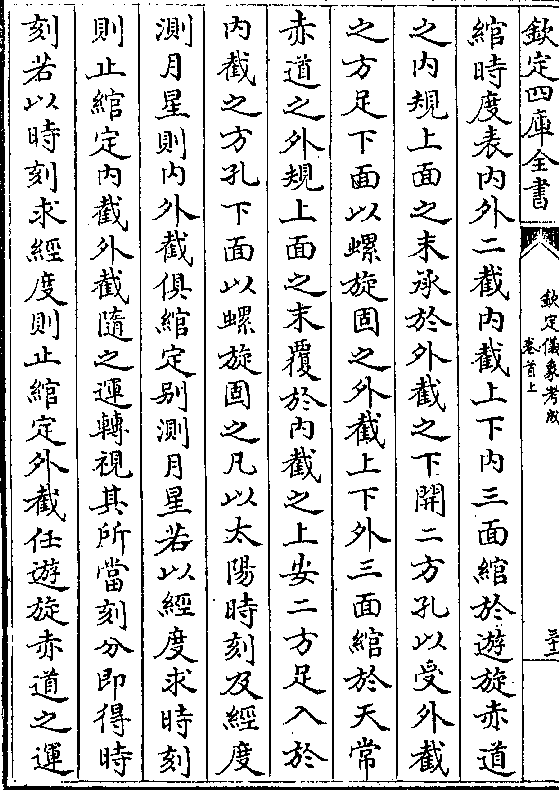 欽定四庫全書
欽定儀象考成
卷首上
三十二
綰時度表内外二截内截上下内三面綰於遊旋赤道
之内規上面之末承於外截之下開二方孔以受外截
之方足下面以螺旋固之外截上下外三面綰於天常
赤道之外規上面之末覆於内截之上安二方足入於
内截之方孔下面以螺旋固之凡以太陽時刻及經度
測月星則内外截俱綰定别測月星若以經度求時刻
則止綰定内截外截隨之運轉視其所當刻分即得時
刻若以時刻求經度則止綰定外截任遊旋赤道之運